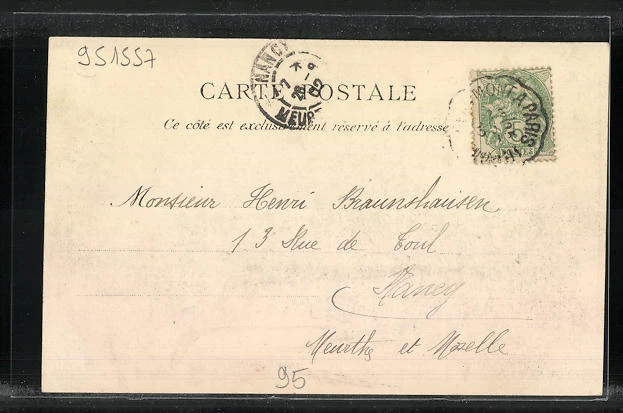 951557
NANCY
MEUR
CARTE POSTALE
Ce côté est exclusivement réservé à l'adresse
MONT PARIS
Monsieur Henri Braunshausen
13 Rue de Toul
Nancy
Meurthe et Moselle
95